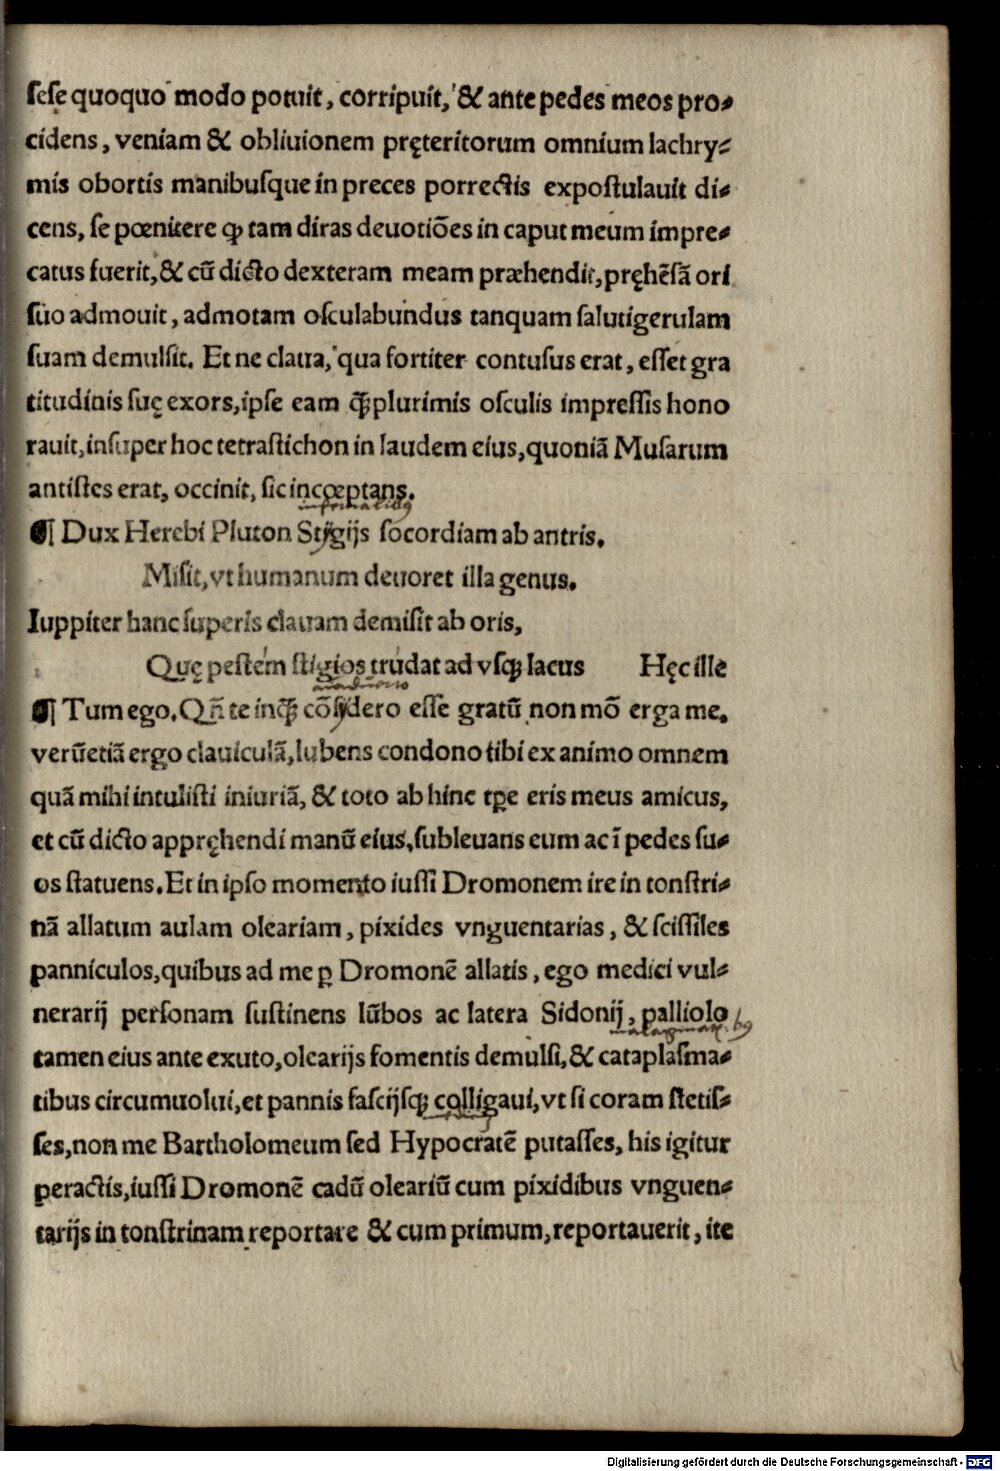 ſeſe quoquo modo potuit, corripuit, & ante pedes meos pro⸗
cidens, veniam & obliuionem pręteritorum omnium lachry⸗
mis obortis manibuſque in preces porrectis expoſtulauit di⸗
cens, ſe pœnitere ꝙ tam diras deuotiões in caput meum impre⸗
catus fuerit, & cũ dicto dexteram meam præhendit, pręhẽſã ori
ſuo admouit, admotam oſculabundus tanquam ſalutigerulam
ſuam demulſit. Et ne claua, qua fortiter contuſus erat, eſſet gra
titudinis ſuę exors, ipſe eam ꝗ̃plurimis oſculis impreſſis hono
rauit, inſuper hoc tetraſtichon in laudem eius, quoniã Muſarum
antiſtes erat, occinit, ſic incœptans.
¶ Dux Herebi Pluton Stygijs ſocordiam ab antris.
Miſit, vt humanum deuoret illa genus.
Iuppiter hanc ſuperis clauam demiſit ab oris,
Quę peſtem ſtigios trudat ad vſqꝫ lacus Hęc ille
¶ Tum ego. Qñ te inquam cõſydero eſſe gratũ non mõ erga me.
verũetiã ergo clauiculã, lubens condono tibi ex animo omnem
quã mihi intuliſti iniuriã, & toto ab hinc tꝑe eris meus amicus,
et cũ dicto appręhendi manũ eius, ſubleuans eum ac ĩ pedes ſu⸗
os ſtatuens. Et in ipſo momento iuſſi Dromonem ire in tonſtri⸗
nã allatum aulam oleariam, pixides vnguentarias, & ſciſſiles
panniculos, quibus ad me ꝑ Dromonẽ allatis, ego medici vul⸗
nerarij perſonam ſuſtinens lũbos ac latera Sidonij, palliolo
tamen eius ante exuto, olearijs fomentis demulſi, & cataplaſma⸗
tibus circumuolui, et pannis faſcijſqꝫ colligaui, vt ſi coram ſtetiſ⸗
ſes, non me Bartholomeum ſed Hypocratẽ putaſſes, his igitur
peractis, iuſſi Dromonẽ cadũ oleariũ cum pixidibus vnguen⸗
tarijs in tonſtrinam reportare & cum primum, reportauerit, ite
Digitalisierung gefördert durch die Deutsche Forschungsgemeinschaft - DFG